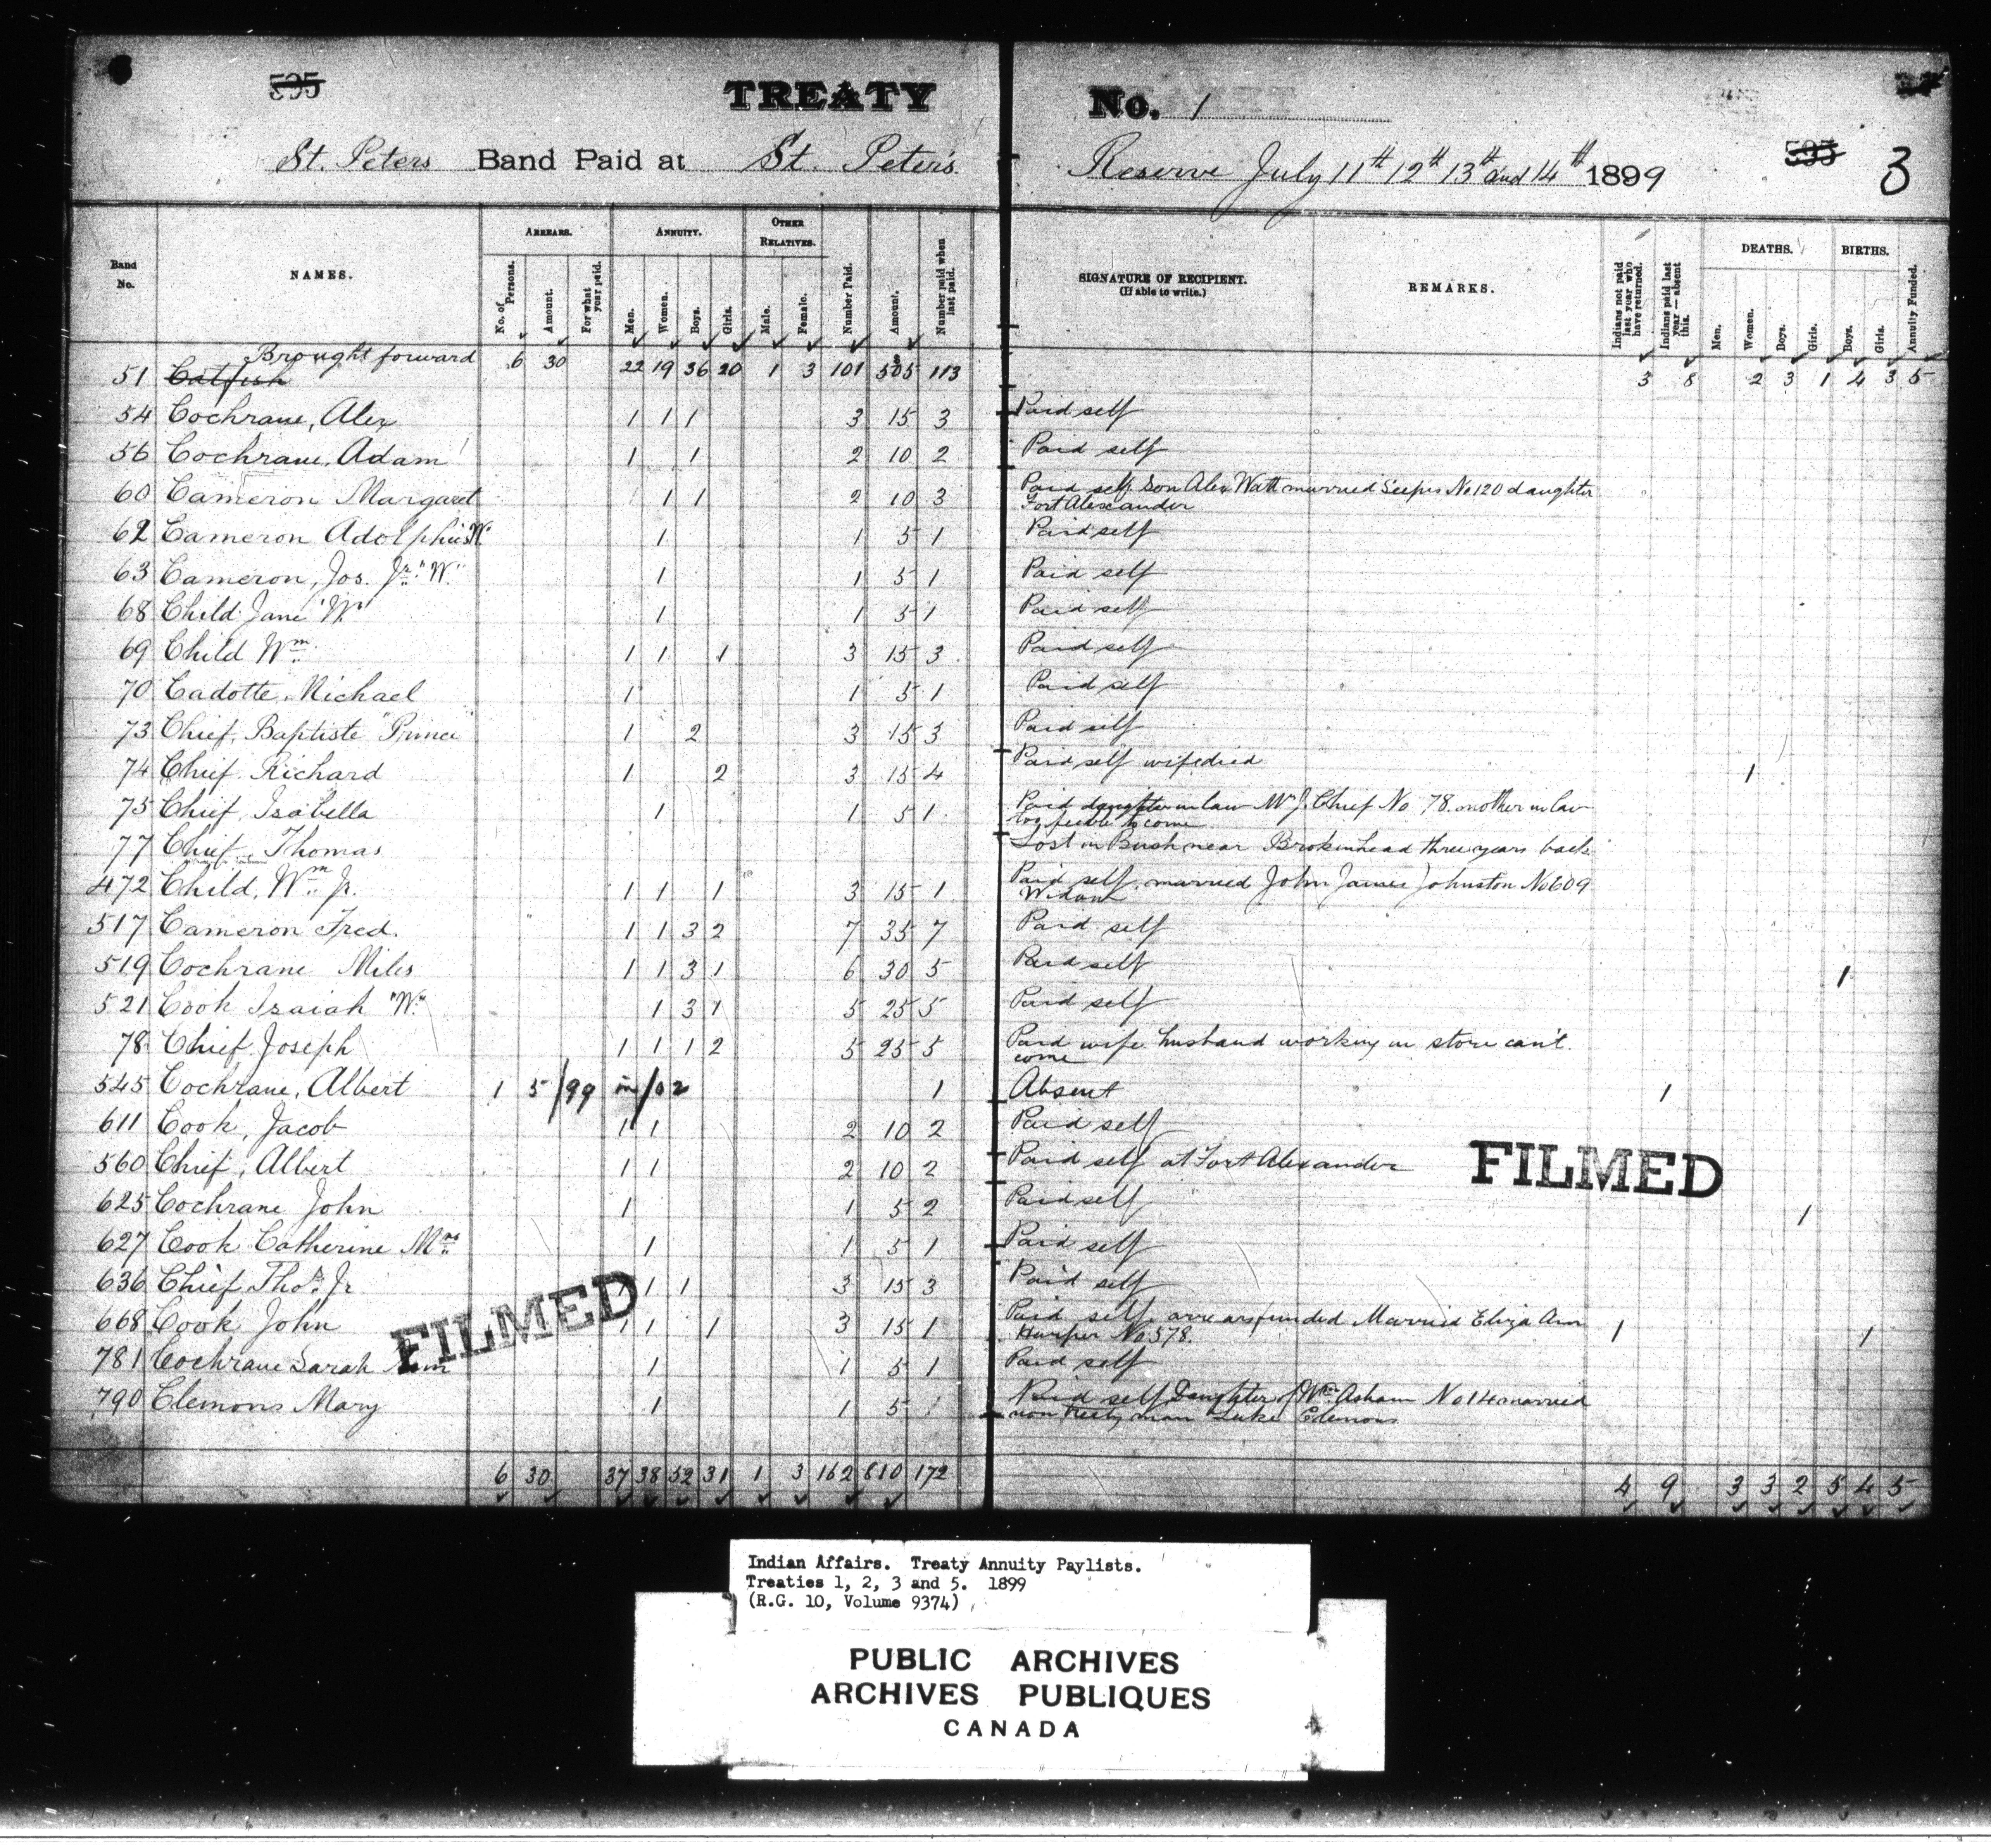 595
TREATY No. 1
St. Peters Band Paid at St. Peter's Reserve July 11th 12th 13th and 14th 1899
595
3
Band No.
NAMES.
ARREARS.
No. of Persons.
Amount.
For what year paid.
ANNUITY.
Men.
Women.
Boys.
Girls.
OTHER RELATIVES.
Male.
Female.
Number Paid.
Amount.
Number paid when last paid.
SIGNATURE OF RECIPIENT.
(If able to write.)
REMARKS.
Indians not paid last year who have returned.
Indians paid last year—absent this.
DEATHS.
Men.
Women.
Boys.
Girls.
BIRTHS.
Boys.
Girls.
Annuity Funded.
Brought forward 6 30 22 19 36 20 1 3 101 505 113 3 8 2 3 1 4 3 5
51 Catfish
54 Cochrane, Alex 1 1 1 3 15 3 Paid self
56 Cochrane, Adam 1 1 2 10 2 Paid self
60 Cameron Margaret 1 1 2 10 3 Paid self Son Alex Watt married Seepis No 120 daughter
Fort Alexander
62 Cameron Adolphus "W" 1 1 5 1 Paid self
63 Cameron, Jos. Jr. "W." 1 1 5 1 Paid self
68 Child Jane "W" 1 1 5 1 Paid self
69 Child Wm. 1 1 1 3 15 3 Paid self
70 Cadotte, Michael 1 1 5 1 Paid self
73 Chief, Baptiste "Prince" 1 2 3 15 3 Paid self
74 Chief, Richard 1 2 3 15 4 Paid self wife died 1
75 Chief, Isabella 1 1 5 1 Paid daughter in law Mrs J. Chief No 78. mother in law
too feeble to come
77 Chief, Thomas Lost in Bush near Brokenhead three years back
472 Child, Wm. Jr. 1 1 1 3 15 1 Paid self, married John James Johnston No 609
Widow
517 Cameron Fred. 1 1 3 2 7 35 7 Paid self
519 Cochrane Miles 1 1 3 1 6 30 5 Paid self 1
521 Cook Isaiah "W." 1 3 1 5 25 5 Paid self
78 Chief Joseph 1 1 1 2 5 25 5 Paid wife husband working in store can't
come
545 Cochrane, Albert 1 5/99 in/02 1 Absent 1
611 Cook, Jacob 1 1 2 10 2 Paid self
560 Chief, Albert 1 1 2 10 2 Paid self at Fort Alexander
FILMED
625 Cochrane John 1 1 5 2 Paid self 1
627 Cook Catherine Mrs. 1 1 5 1 Paid self
636 Chief Thos. Jr 1 1 3 15 3 Paid self
FILMED
668 Cook John 1 1 1 3 15 1 Paid self, arrears funded Married Eliza Ann 1 1
Harper No 578.
781 Cochrane Sarah Ann 1 1 5 1 Paid self
790 Clemons Mary 1 1 5 1 Paid self Daughter of Wm. Asham No 14 married
non treaty man Luke Clemons
6 30 37 38 52 31 1 3 162 810 172 4 9 3 3 2 5 4 5
Indian Affairs. Treaty Annuity Paylists.
Treaties 1, 2, 3 and 5. 1899
(R.G. 10, Volume 9374)
PUBLIC ARCHIVES
ARCHIVES PUBLIQUES
CANADA